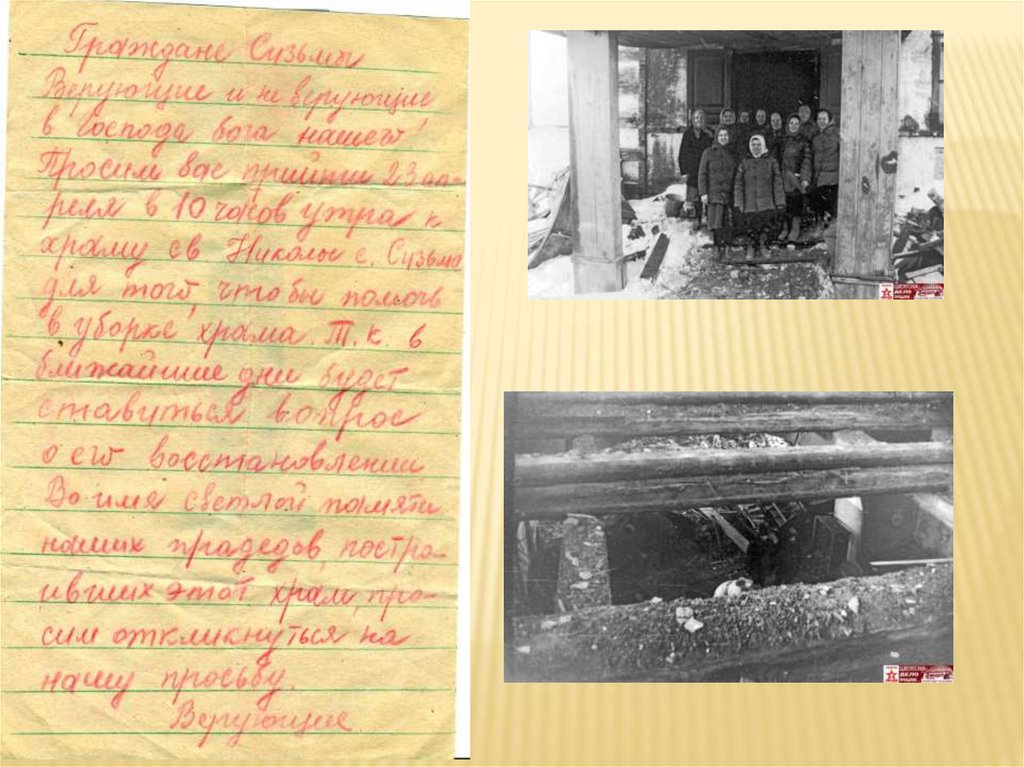 Граждане Сузьмы
Верующие и не верующие
в Господа бога нашего!
Просим вас прийти 23 ап-
реля в 10 часов утра к
храму св Николы с. Сузьма
для того, чтобы помочь
в уборке храма. Т.к. в
ближайшие дни будет
ставиться вопрос
о его восстановлении
Во имя светлой памяти
наших прадедов, постро-
ивших этот храм, про-
сим откликнуться на
нашу просьбу.
Верующие.